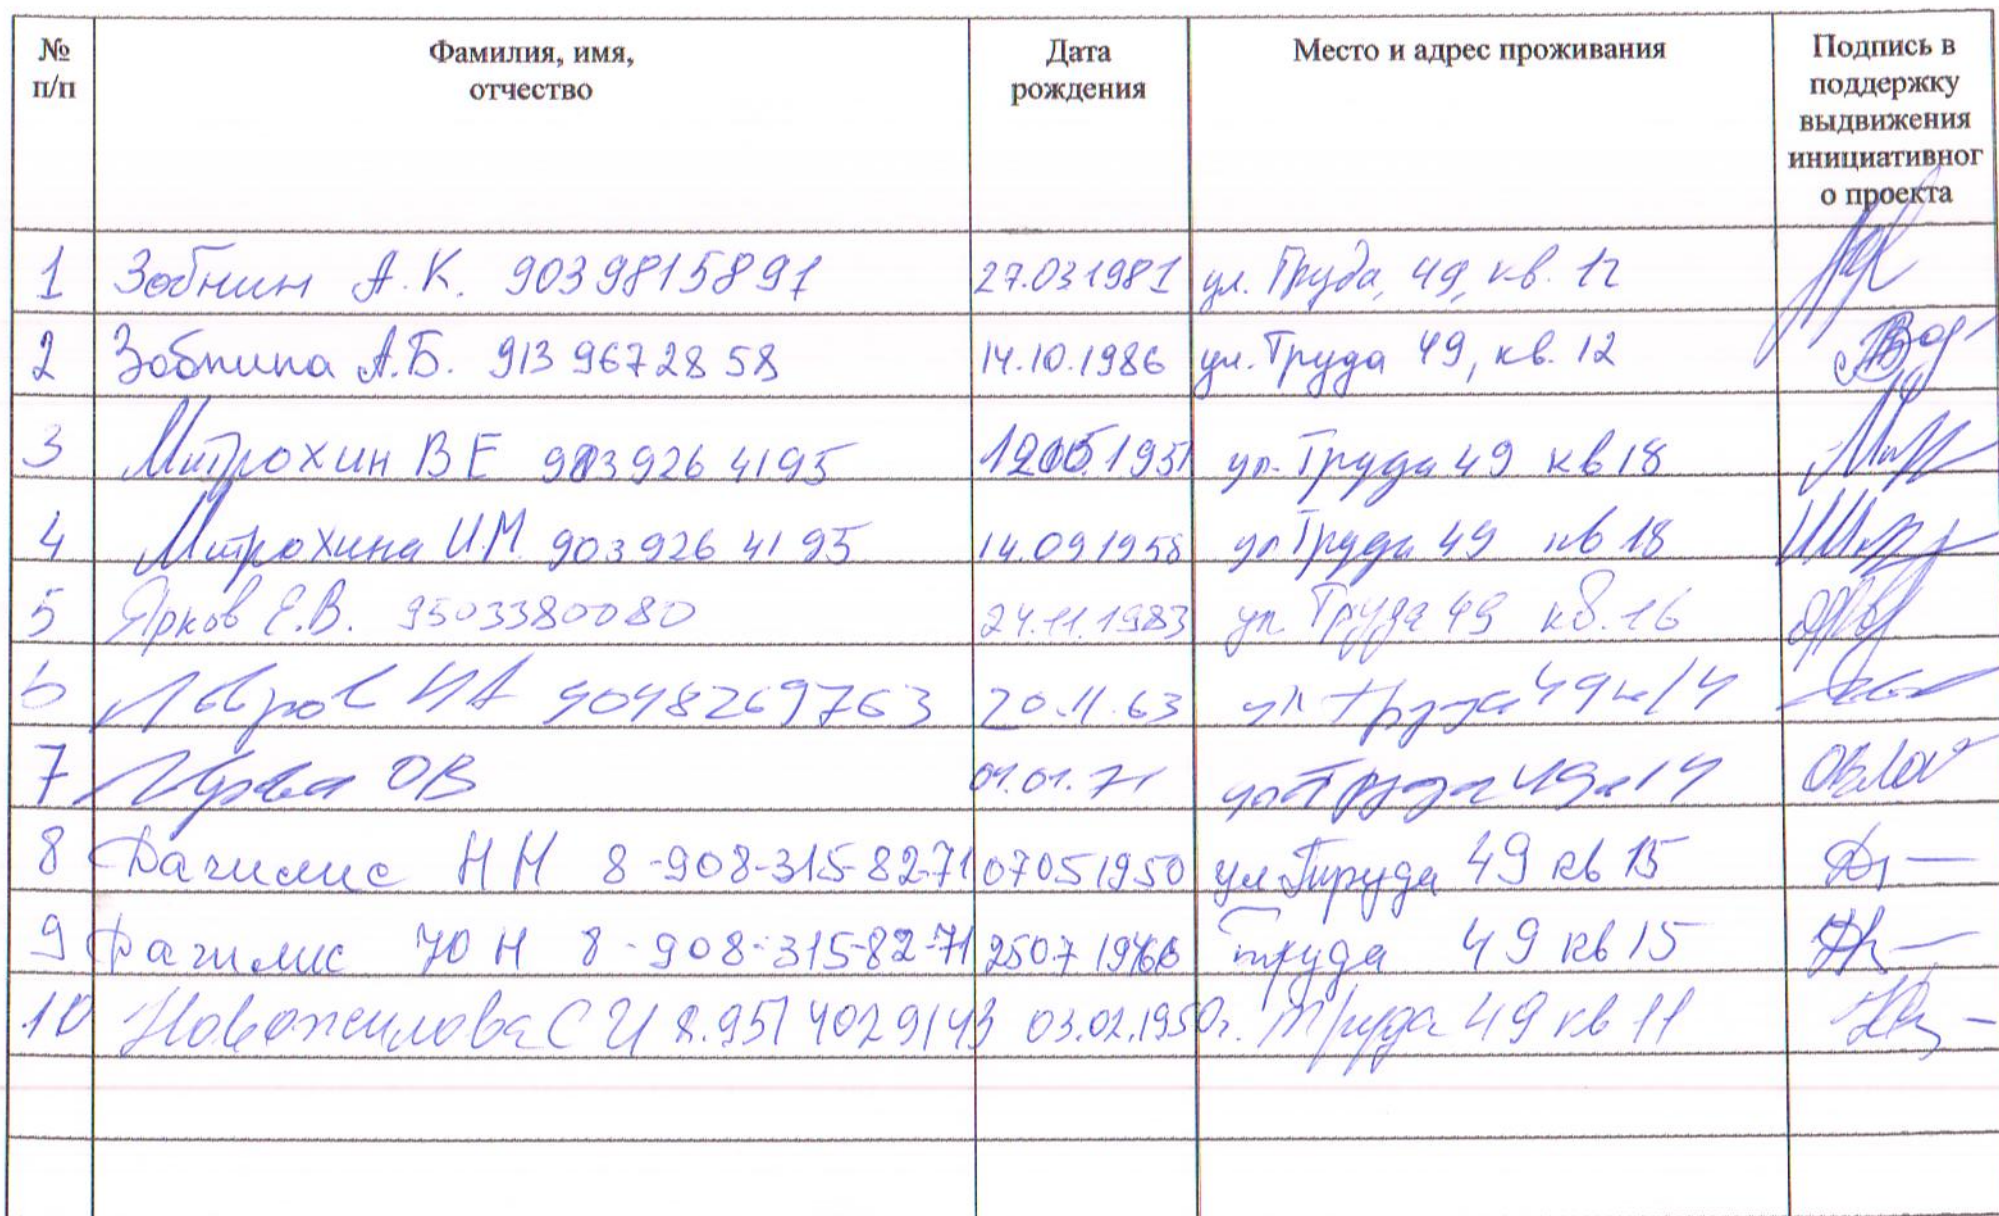 № п/п Фамилия, имя, отчество Дата рождения Место и адрес проживания Подпись в поддержку выдвижения инициативного проекта
1 Зобнин А.К. 9039815891 27.03.1981 ул. Труда, 49, кв. 12
2 Зобнина А.Б. 913 967 28 58 14.10.1986 ул. Труда 49, кв. 12
3 Митрохин В Е 903 926 4195 05 1951 ул. Труда 49 кв 18
4 Митрохина И.М. 903 926 41 95 14.09 1958 ул Труда 49 кв 18
5 Ярков Е.В. 9503380080 24.11.1983 ул Труда 49 кв. 16
6 9048269763 20.11.63 ул Труда 49 к 14
7 ОВ 01.71 ул Труда 49 к 14
8 Н Н 8-908-315-82-71 07 05 1950 ул. Труда 49 кв 15
9 Ю Н 8-908-315-82-71 25 07 Труда 49 кв 15
10 Новожилова С И 8.951 402 91 43 03.02.1950г. Труда 49 кв 11